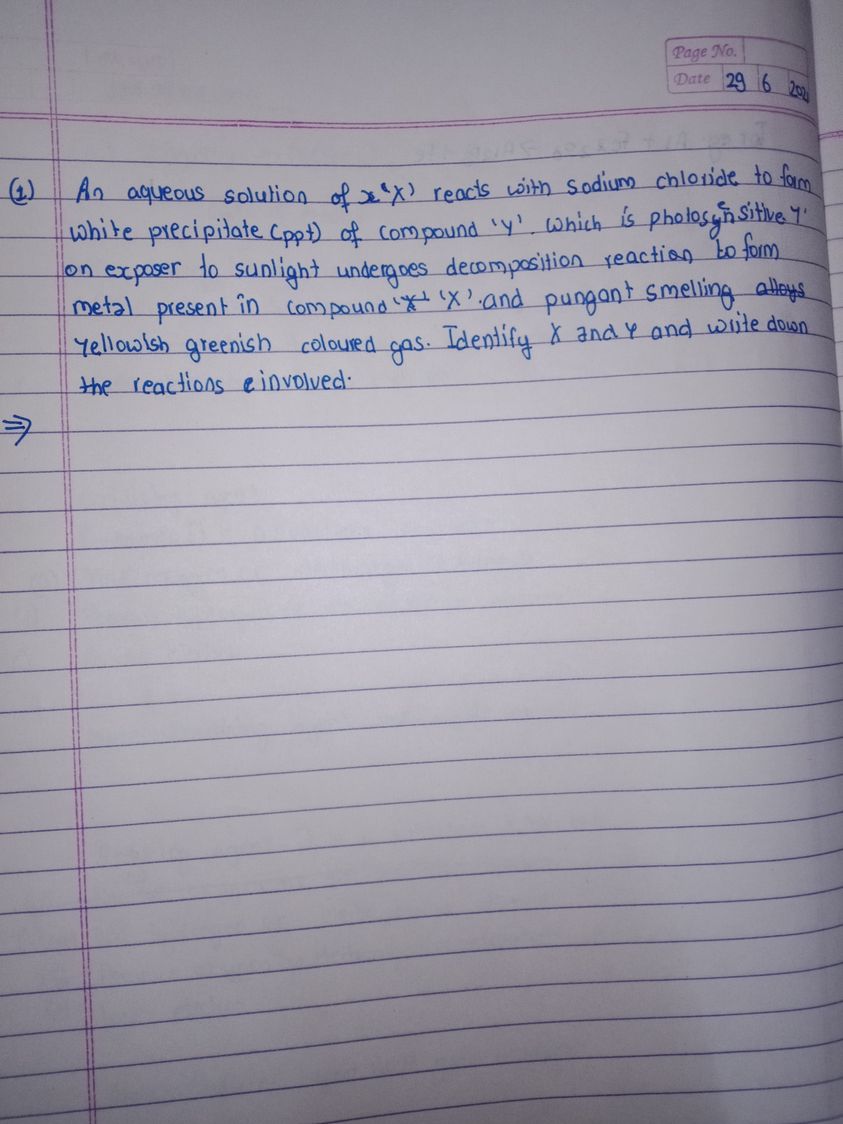 Page No.
Date 29 6 202
(1) An aqueous solution of 'X' reacts with sodium chloride to form
white precipitate (ppt) of compound 'y'. Which is photosensitive Y'
on exposer to sunlight undergoes decomposition reaction to form
metal present in compound 'X' and pungant smelling
yellowish greenish coloured gas. Identify X and Y and write down
the reactions involved.
⇒